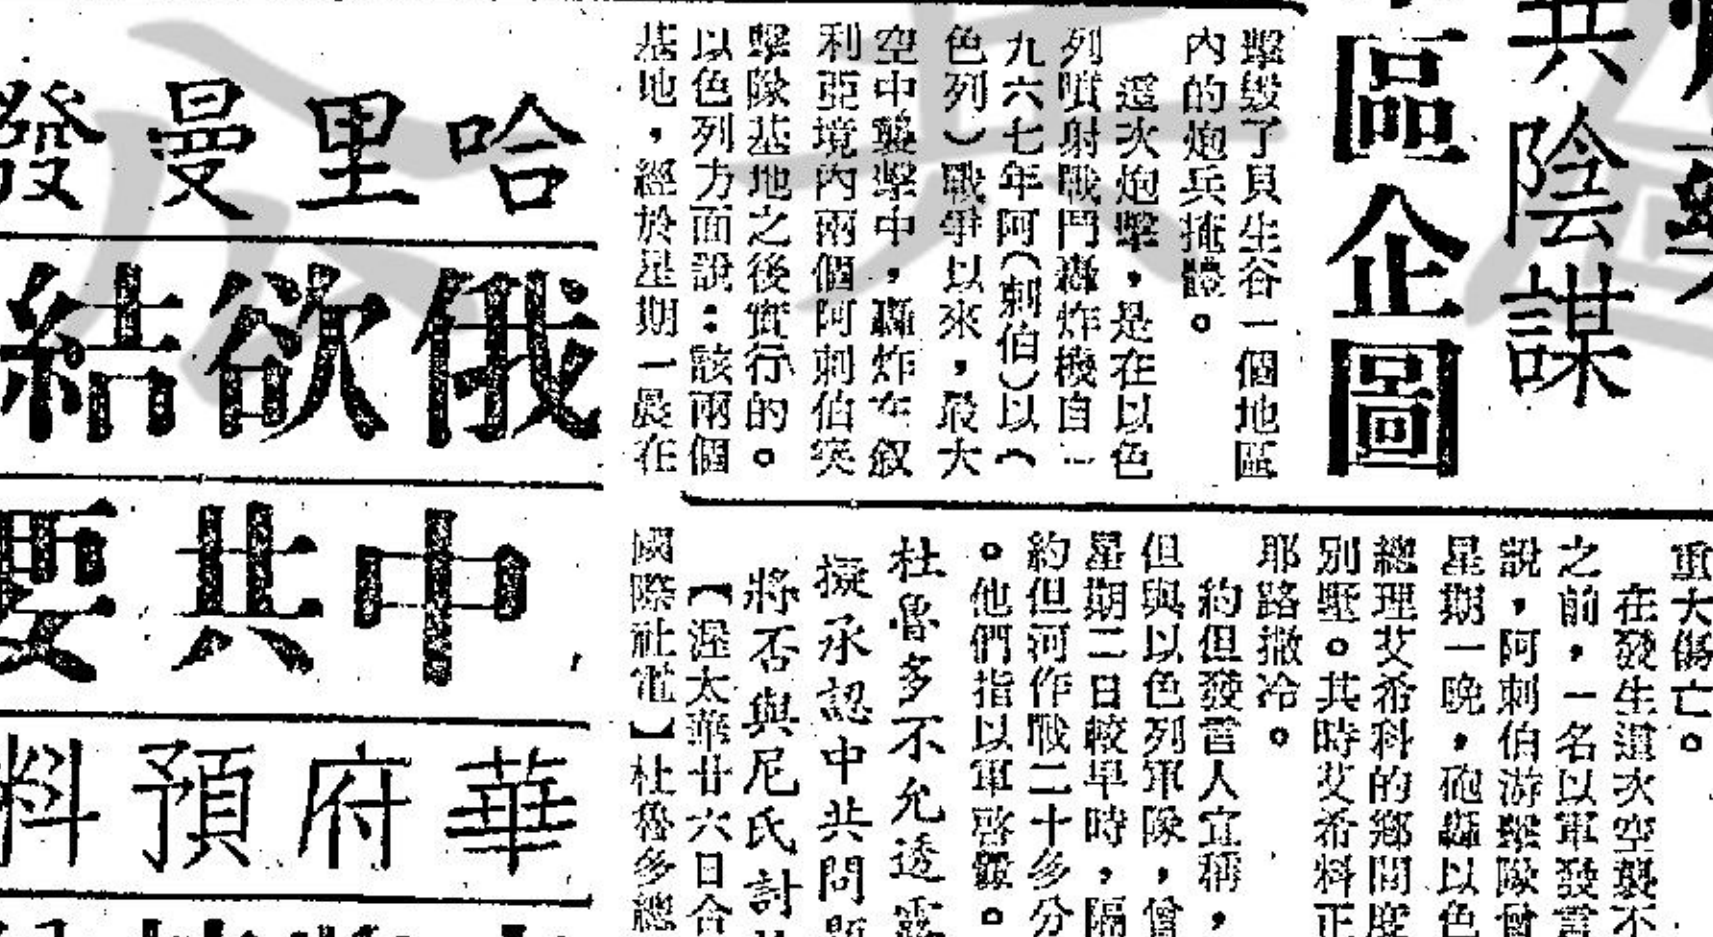 共陰謀
區企圖
擊毀了貝生谷一個地區
內的炮兵掩護。
這次炮擊,是在以色
列噴射戰鬥轟炸機自一
九六七年阿(刺伯)以(
色列)戰爭以來,最大
空中襲擊中,轟炸在叙
利亞境內兩個阿刺伯突
擊隊基地之後實行的。
以色列力面說:該兩個
基地,經於星期一晨在
重大傷亡。
在發生這次空襲不
之前,一名以軍發言
說,阿刺伯游擊隊曾
星期一晚,砲轟以色
總理艾希科的鄉間度
別墅。其時艾希料正
耶路撒冷。
約但發言人宣稱,
但與以色列軍隊,曾
星期二日較早時,隔
約但河作戰二十多分
。他們指以軍啓釁。
杜魯多不允透露
擬承認中共問題
將否與尼氏討
【渥太華廿六日合
國際社電】杜魯多總
哈里曼發
俄欲結
中共要
華府預料